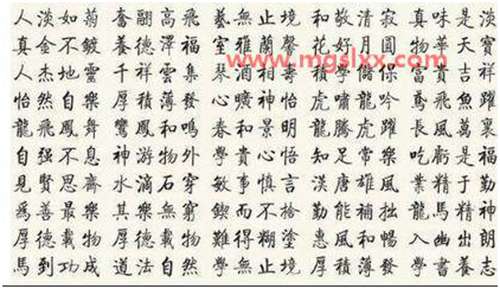 人淡如菊 奮翮高飛 藝無止境 和敬清寂 真味是淡
真金不鍍 養德澤福 室雅蘭馨 花好月圓 物華天寶
www.mgslxx.com
人杰地靈 千祥雲集 相壽 積學儲 富貴吉祥
怡然自樂 厚積薄發 心曠神怡 虎嘯龍吟 鳶飛魚躍
龍飛鳳舞 鸞鳳和鳴 春和景明 龍騰虎躍 長風萬裏
自强不息 神游物外 學貴心悟 知足常樂 吃虧是福
見賢思齋 水滴石穿 敏事慎言 漢唐雄風 業精于勤
爲善最樂 其樂無窮 鍥而不捨 勤能補拙 龍馬精神
厚德載物 厚德載物 難得糊塗 惠風和暢 入幽出朗
馬到功成 道法自然 學無止境 厚積薄發 學書養志